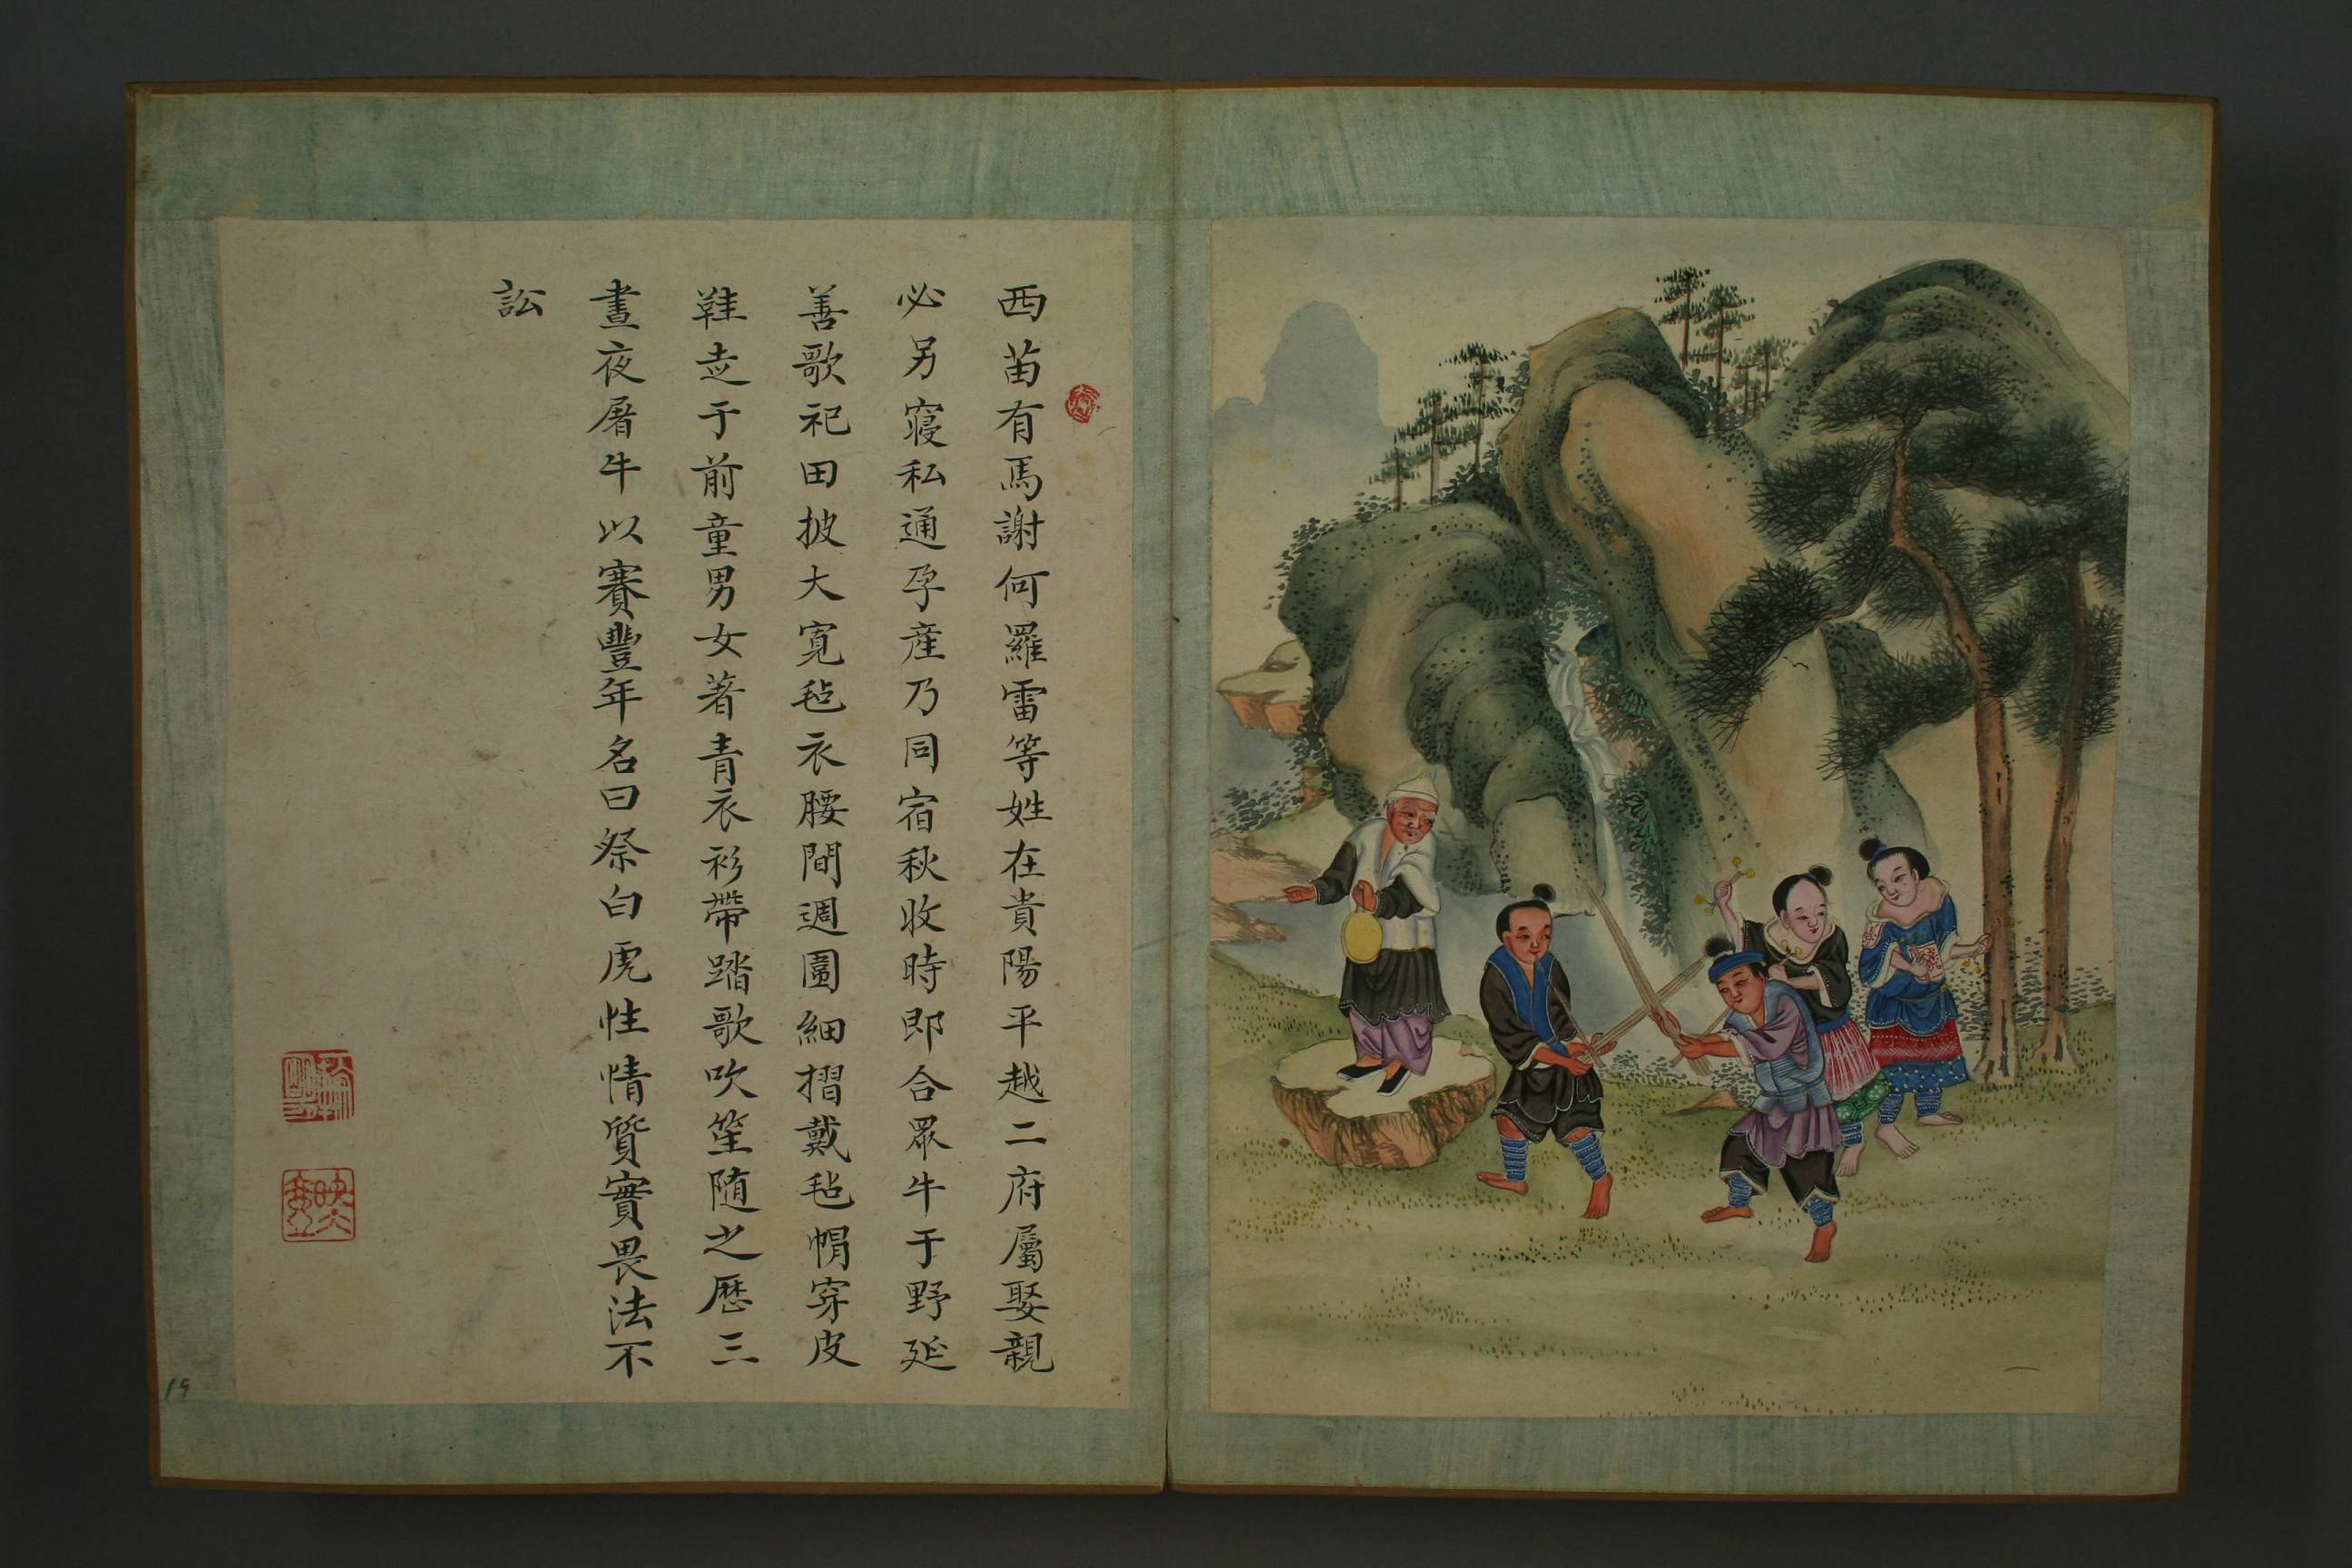 西苗有馬謝何羅雷等姓在貴陽平越二府屬娶親
必另寢私通孕產乃同宿秋收時即合眾牛于野延
善歌祀田披大寬毡衣腰間週圍細摺戴毡帽穿皮
鞋走于前童男女著青衣衫帶踏歌吹笙随之歷三
晝夜屠牛以賽豐年名曰祭白虎性情質實畏法不
訟
19